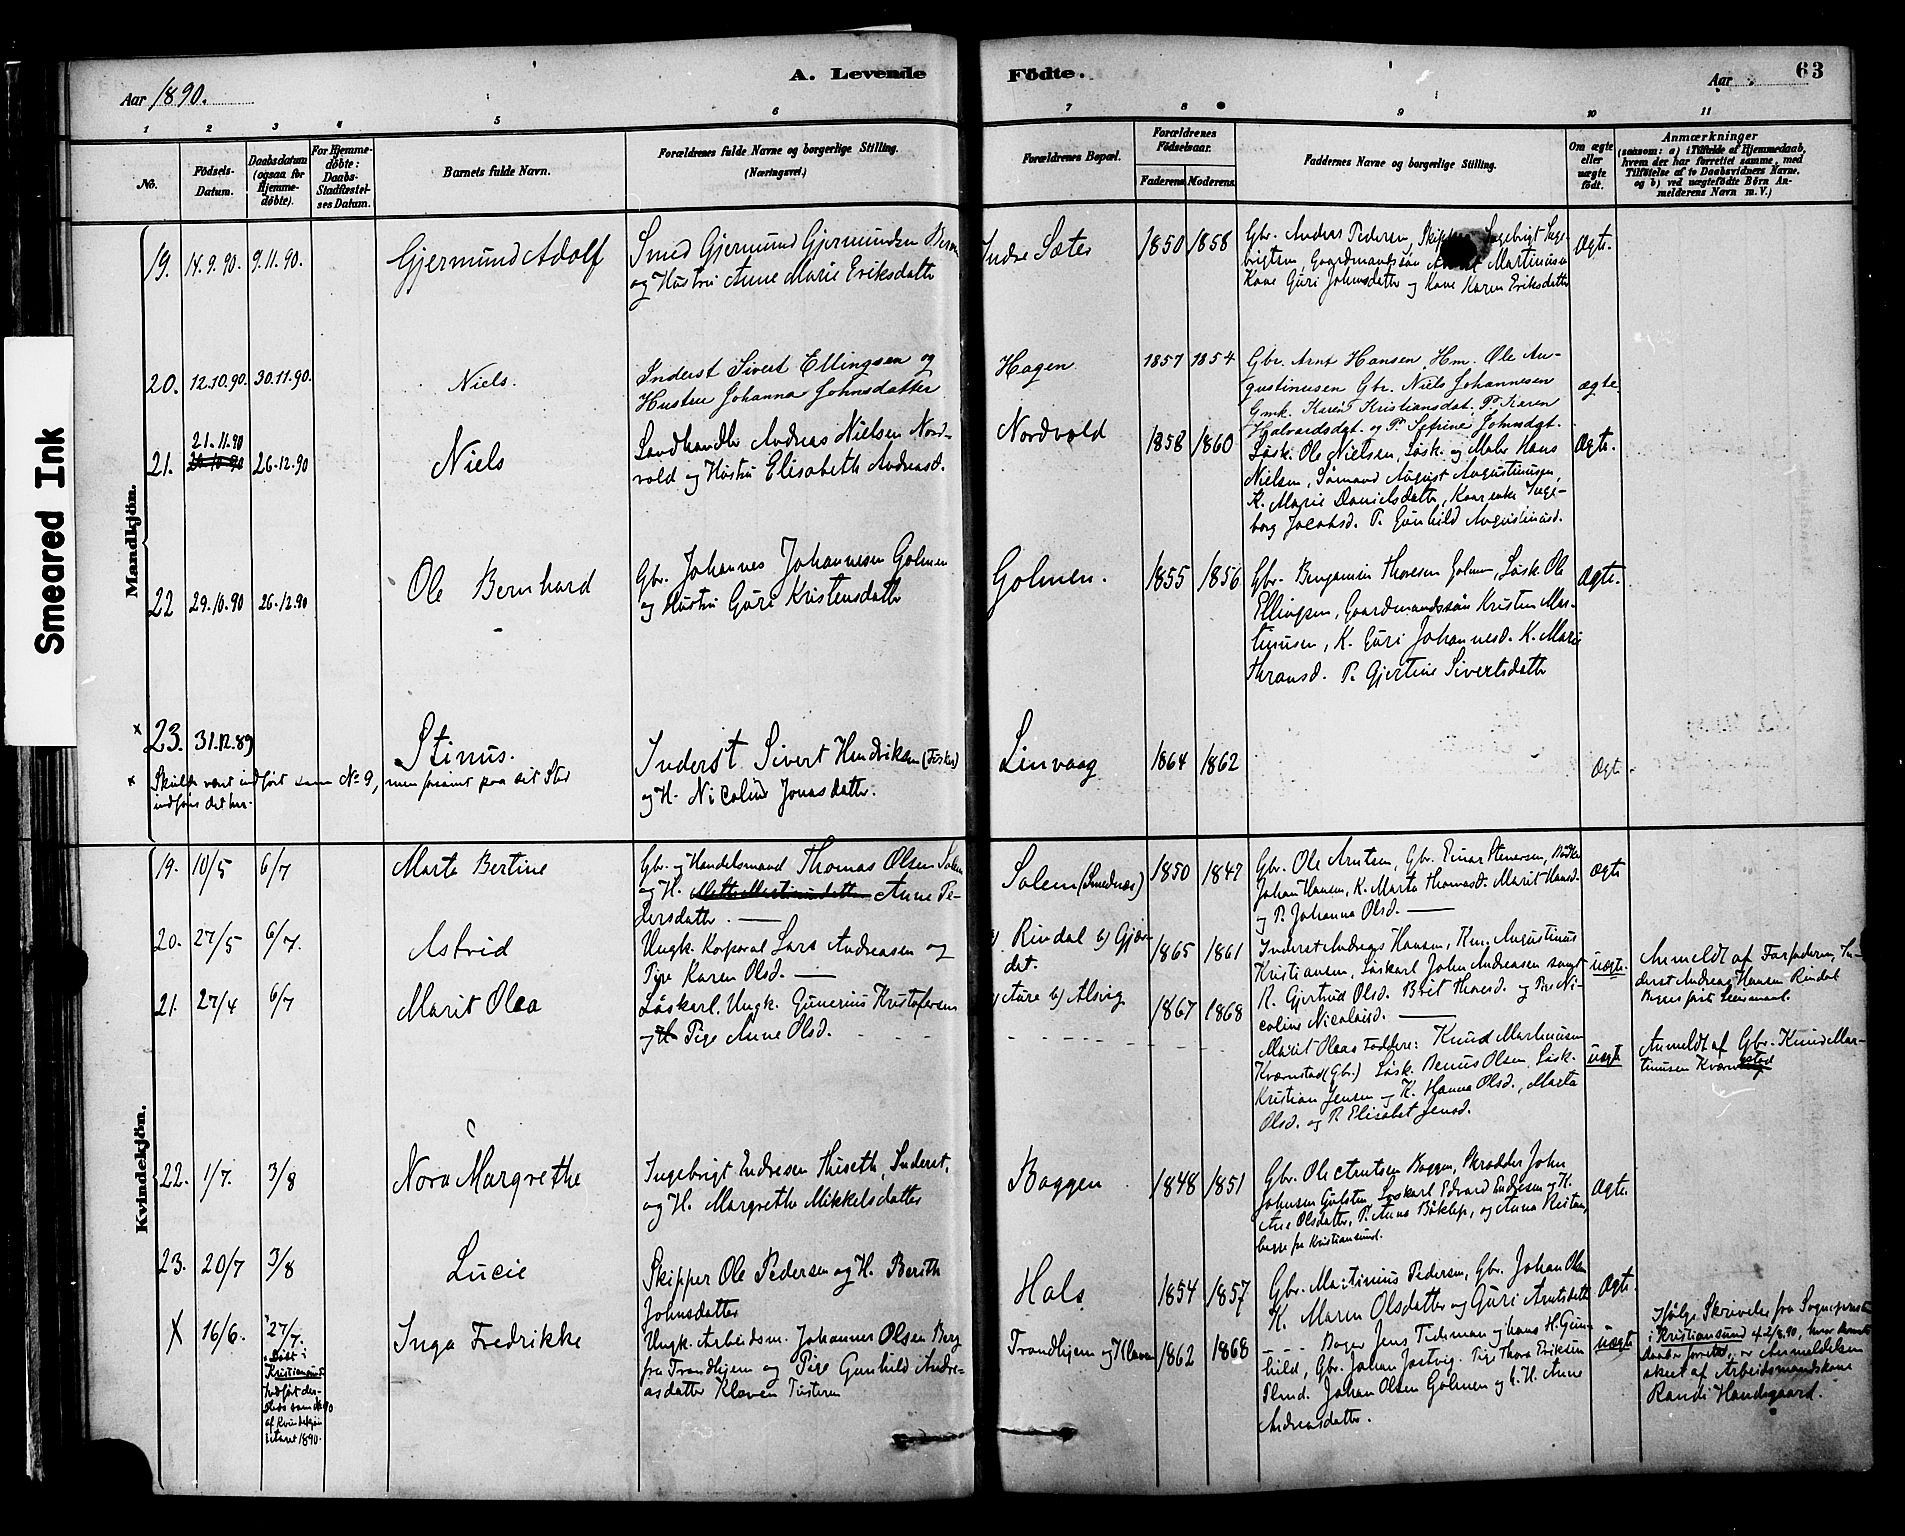 Smeared Ink
Aar 1890.
A. Levende
Födte.
Aar
63
1 2 3 4 5 6 7 8 9 10 11
No.
Födsels-
Datum.
Daabsdatum
(ogsaa for
Hjemme-
döbte).
For Hjemme-
döbte:
Daabs-
Stadfæstel-
ses Datum.
Barnets fulde Navn.
Forældrenes fulde Navne og borgerlige Stilling.
(Næringsvei.)
Forældrenes Bopæl.
Forældrenes
Födselsaar.
Faderens. Moderens.
Faddernes Navne og borgerlige Stilling.
Om ægte
eller
uægte
født.
Anmærkninger
(saasom: a) i Tilfælde af Hjemmedaab,
hvem der har forrettet samme, med
Tilföielse af to Daabsvidners Navne,
og b) ved uægtefödte Börn An-
melderens Navn m. V.)
Mandkjön.
19. 14.9.90. 9.11.90.
Gjermund Adolf
Smed Gjermund Gjermundsen
og Hustru Anne Marie Eriksdatter
Indre Sæter
1850 1858
Gbr. Anders Pedersen, Skipper Ingebrigt Inge-
brigtsen, Gaardmandssön Martinusen
Kone Guri Johnsdatter og Kone Karen Eriksdatter
Ægte.
20. 12.10.90. 30.11.90.
Niels.
Inderst Sivert Ellingsen og
Hustru Johanna Johnsdatter
Hagen
1857 1854
Gbr. Arnt Hansen, Hm. Ole Au-
gustinusen Gbr. Niels Johannesen
Gmk. Karen Kristiansdat. P. Karen
Halvardsdat. og P. Serine Johnsdat.
ægte
21. 21.11.90 26.12.90
Niels
Landhandler Andreas Nielsen Nord-
vold og Hustru Elisabeth Andreasd.
Nordvold
1858 1860
Løsk. Ole Nielsen, Løsk. og Maler Hans
Nielsen, Sömand August Augustinusen,
K. Marie Danielsdatter, Kaarenke Inge-
borg Jacobsd. P. Gunhild Augustinusd.
Ægte.
22 29.10.90 26.12.90
Ole Bernhard
Gbr. Johannes Johannesen Golmen
og Hustru Guri Kristensdatter
Golmen.
1855 1856
Gbr. Benjamin Thoresen Golmen, Løsk. Ole
Ellingsen, Gaardmandssön Kristen Mar-
tinusen, K. Guri Johannesd. K. Marie
P. Gjertine Sivertsdatter
Ægte.
x 23. 31.12.89
Stinus.
Inderst Sivert Hendriksen (Fisker)
og H. Nicoline Jonasdatter.
Linvaag
1864 1862
Ægte
x Skulde været indført som No 9, men forsömt paa sit Sted
indføres det her.
Kvindekjön.
19. 10/5 6/7
Marta Bertine
Gbr. og Handelsmand Thomas Olsen Solem
og H. Anne Pe-
dersdatter.
Solem (Smednæs)
1850 1847
Gbr. Ole Arntsen, Gbr. Einar Stenersen,
Johan Hansen, K. Marta Thomasd. Marit Hansd.
og P. Johanna Olsd.
Ægte
20. 27/5 6/7.
Astrid
Ungk. Korporal Lars Andreasen og
Pige Karen Olsd.
a) Rindal b) Gjær-
det.
1865 1861
Inderst Andreas Hansen, Hm. Augustinus
Kristiansen, Löskarl John Andreasen samt
K. Gjertrud Olsd. Brit Thoresd. og Pie Ni-
coline Nicolaisd.
uægte.
Anmeldt af Farfaderen, In-
derst Andreas Hansen Rindal
21. 27/4 6/7
Marit Olea
Löskarl, Ungk. Gunerius Kristofersen
og Pige Anne Olsd.
a) Aure b) Alvig
1867 1868
Marit Oleas Faddere: Knud Martinusen
Kvernstad (Gbr.) Løsk. Benus Olsen, Løsk.
Kristian Jensen og K. Hanna Olsd., Marta
Olsd. og P. Elisabet Jensd.
uægte
Anmeldt af Gbr. Knud Mar-
tinusen Kvernstad
22. 1/7. 3/8
Nora Margrethe
Ingebrigt Endresen Huseth, Inderst,
og H. Margrethe Mikkelsdatter
Baggen
1848 1851
Gbr. Ole Arntsen Baggen, Skrædder John
Johnsen Gulsten Løskarl Edvard Endresen og K.
Ane Olsdatter, P. Anna og Anna
begge fra Kristiansund.
Ægte.
23. 20/7 3/8
Lucie
Skipper Ole Pedersen og H. Berith
Johnsdatter
Hals
1854 1857
Gbr. Martinius Pedersen, Gbr. Johan Olsen
K. Maren Olsdatter og Guri Arntsdatter
Ægte.
X 16/6. 27/7.
Döbt i
Kristiansund
Indført der-
af Kvindekjön
i Aaret 1890.
Inga Fredrikke
Ungk. Arbeidsm. Johannes Olsen Berg
fra Trondhjem og Pige Gunhild Andre-
asdatter Kloven Tusteren
Trondhjem og Kloven
1862 1868
Bager Jens Tideman og hans H. Gun-
hild, Gbr. Johan Pige Thora Eriksen
Johan Olsen Golmen og h. H. Anne
Andreasdatter.
uægte
Ifølge Skrivelse fra Sognepresten
i Kristiansund af 2/8.90, hvor
Daaben foretoges, er Anmeldelsen
skeet af Arbeidsmandskone
Randi Handegaard.